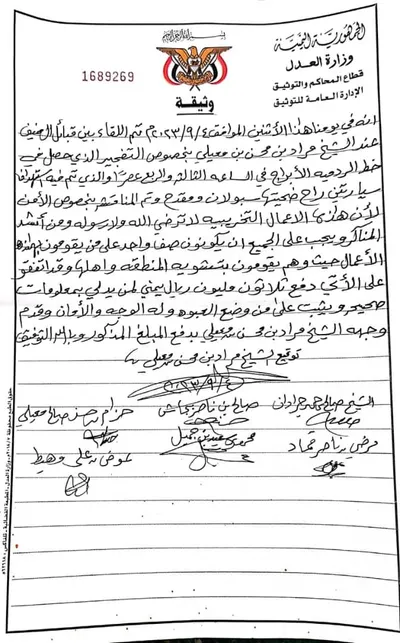 الجمهورية اليمنية
وزارة العدل
قطاع المحاكم والتوثيق
الإدارة العامة للتوثيق
1689269
وثيقة
انه في يومنا هذا الأثنين الموافق ٢٠٢٣/٩/٤م تم اللقاء بين قبائل
عند الشيخ مراد بن محسن بن معيلي بخصوص التفجير الذي حصل في
خط الردميه الأبراج في الساعه الثالثه والربع عصراً والذي تم فيه
سيارتين راح ضحيتها سبولان ومقدح وتم المناقشه بخصوص الأمن
لأن هذه الاعمال التخريبيه لا ترضي الله ولا رسوله ومن أشد
المناكر ويجب على الجميع ان يكونون صف واحد على من يقومون بهذه
الأعمال حيث وهم يقومون بتشويه المنطقه واهلها وقد اتفق
على الآتي دفع ثلاثون مليون ريال يمني لمن يدلي بمعلومات
صحيح ويثبت على من وضع العبوه وله الوجه والأمان وقدم
وجهه الشيخ مراد بن محسن معيلي بدفع المبلغ المذكور والله الموفق
توقيع الشيخ مراد بن محسن معيلي
٢٠٢٣/٩/٤
الشيخ صالح حمد جرادان
صالح بن ناصر
حزام صالح معيلي
مرضي بن ناصر
عوض بن علي وهيط